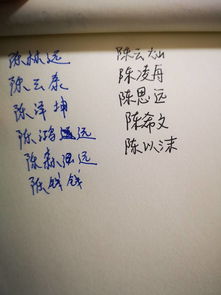 陈林远
陈云泰
陈泽坤
陈鸿远
陈森温远
陈钱钱
陈云灿
陈凌舟
陈思远
陈希文
陈以沫